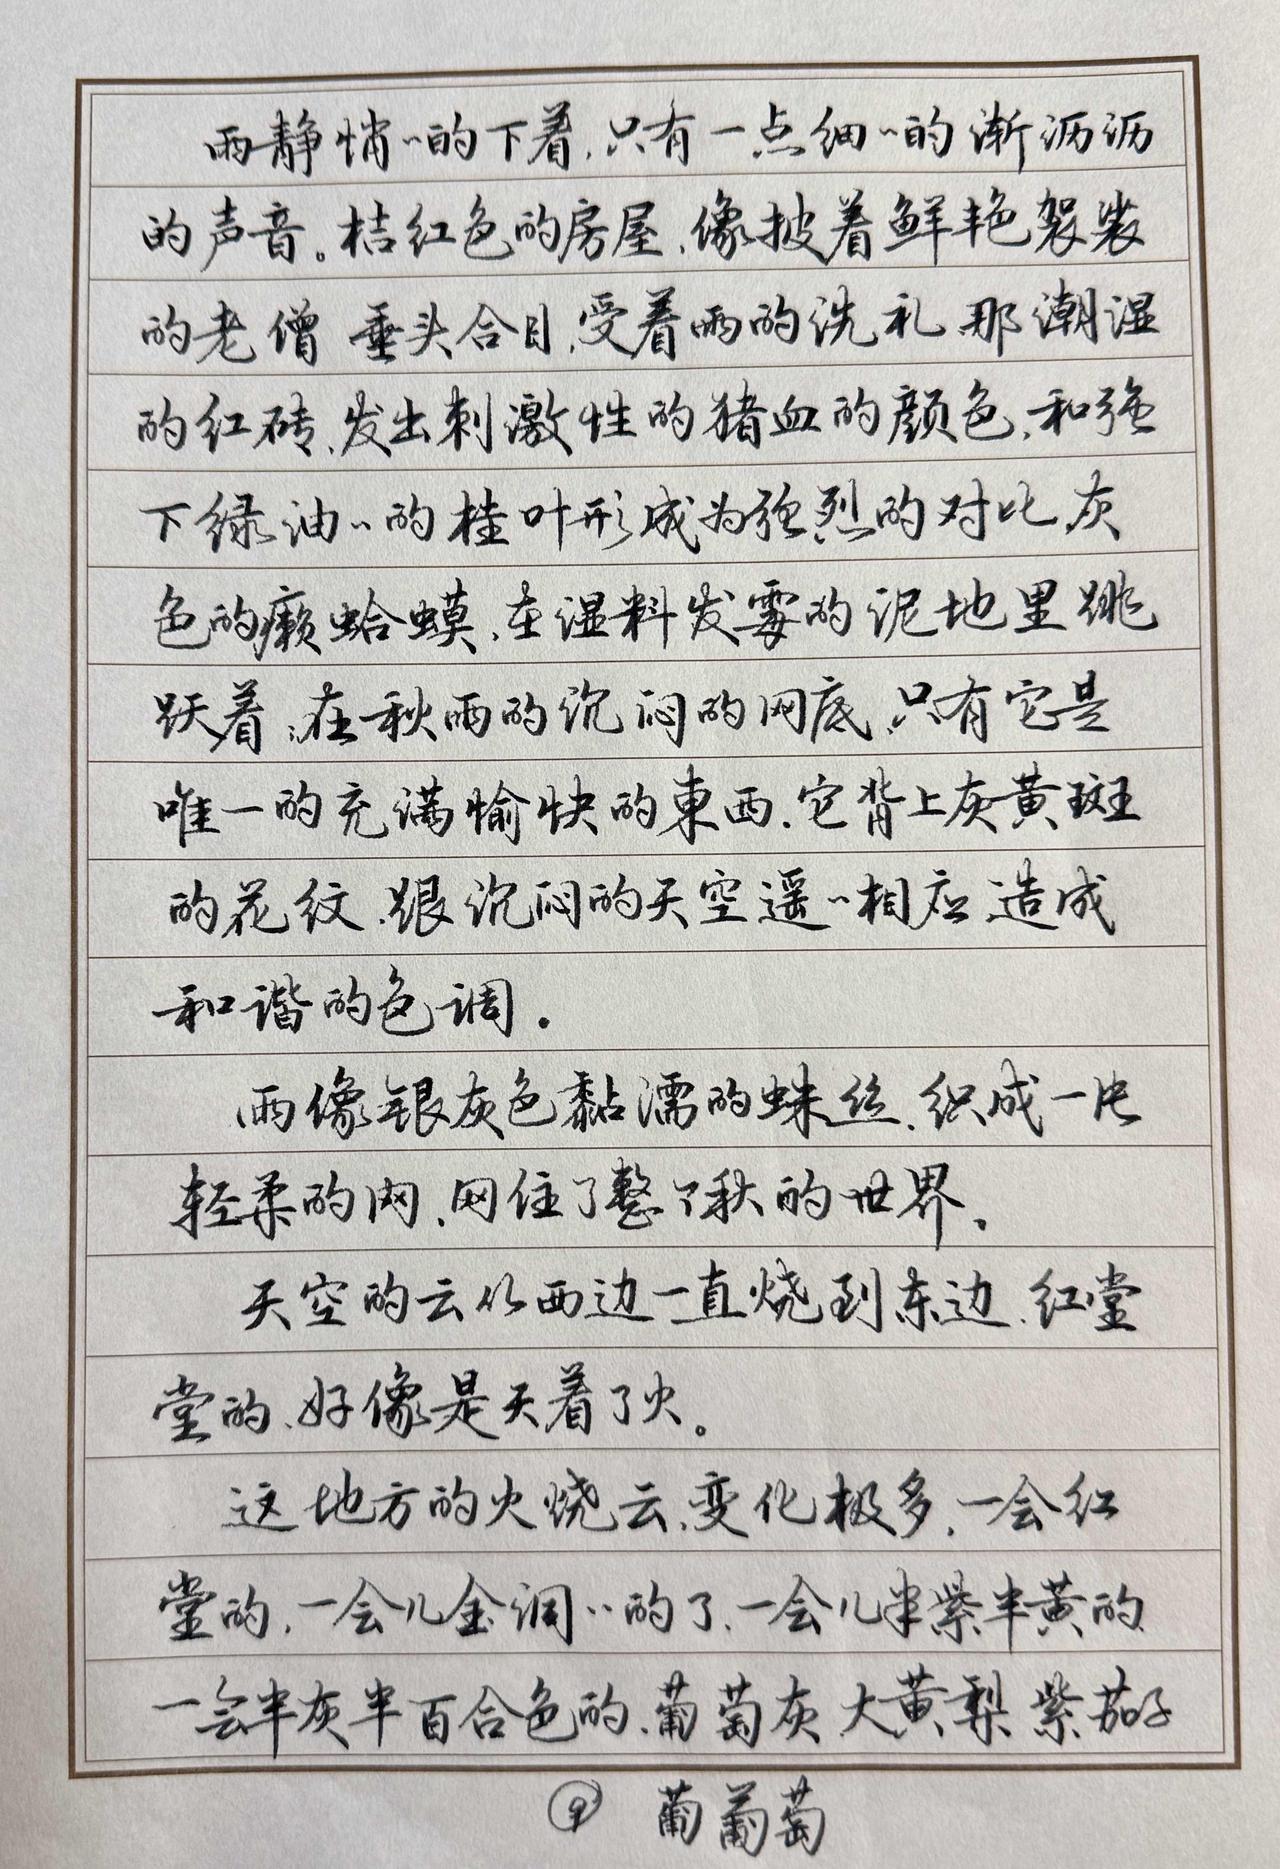 雨静悄〃的下着，只有一点细〃的渐沥沥
的声音。桔红色的房屋，像披着鲜艳袈裟
的老僧 垂头合目，受着雨的洗礼 那潮湿
的红砖，发出刺激性的猪血的颜色，和强
下绿油〃的桂叶形成为强烈的对比，灰
色的癞蛤蟆，在湿料发霉的泥地里跳
跃着，在秋雨的沉闷的网底，只有它是
唯一的充满愉快的東西，它背上灰黄斑
的花纹，跟沉闷的天空遥〃相应，造成
和谐的色调。
雨像银灰色黏濡的蛛丝，织成一片
轻柔的网，网住了整个秋的世界。
天空的云从西边一直烧到东边，红堂
堂的，好像是天着了火。
这地方的火烧云，变化极多，一会红
堂的，一会儿金洞〃的了，一会儿半紫半黄的，
一会半灰半百合色的，葡萄灰，大黄梨，紫茄子
⑨ 葡葡萄